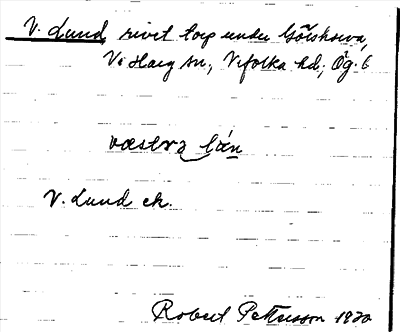 V. Lund rivet torp under Götskorva,
V. Harg sn, Vifolka hd, Ög. 6
væstrɜ lán
V. Lund ek.
Robert Pettersson 1920